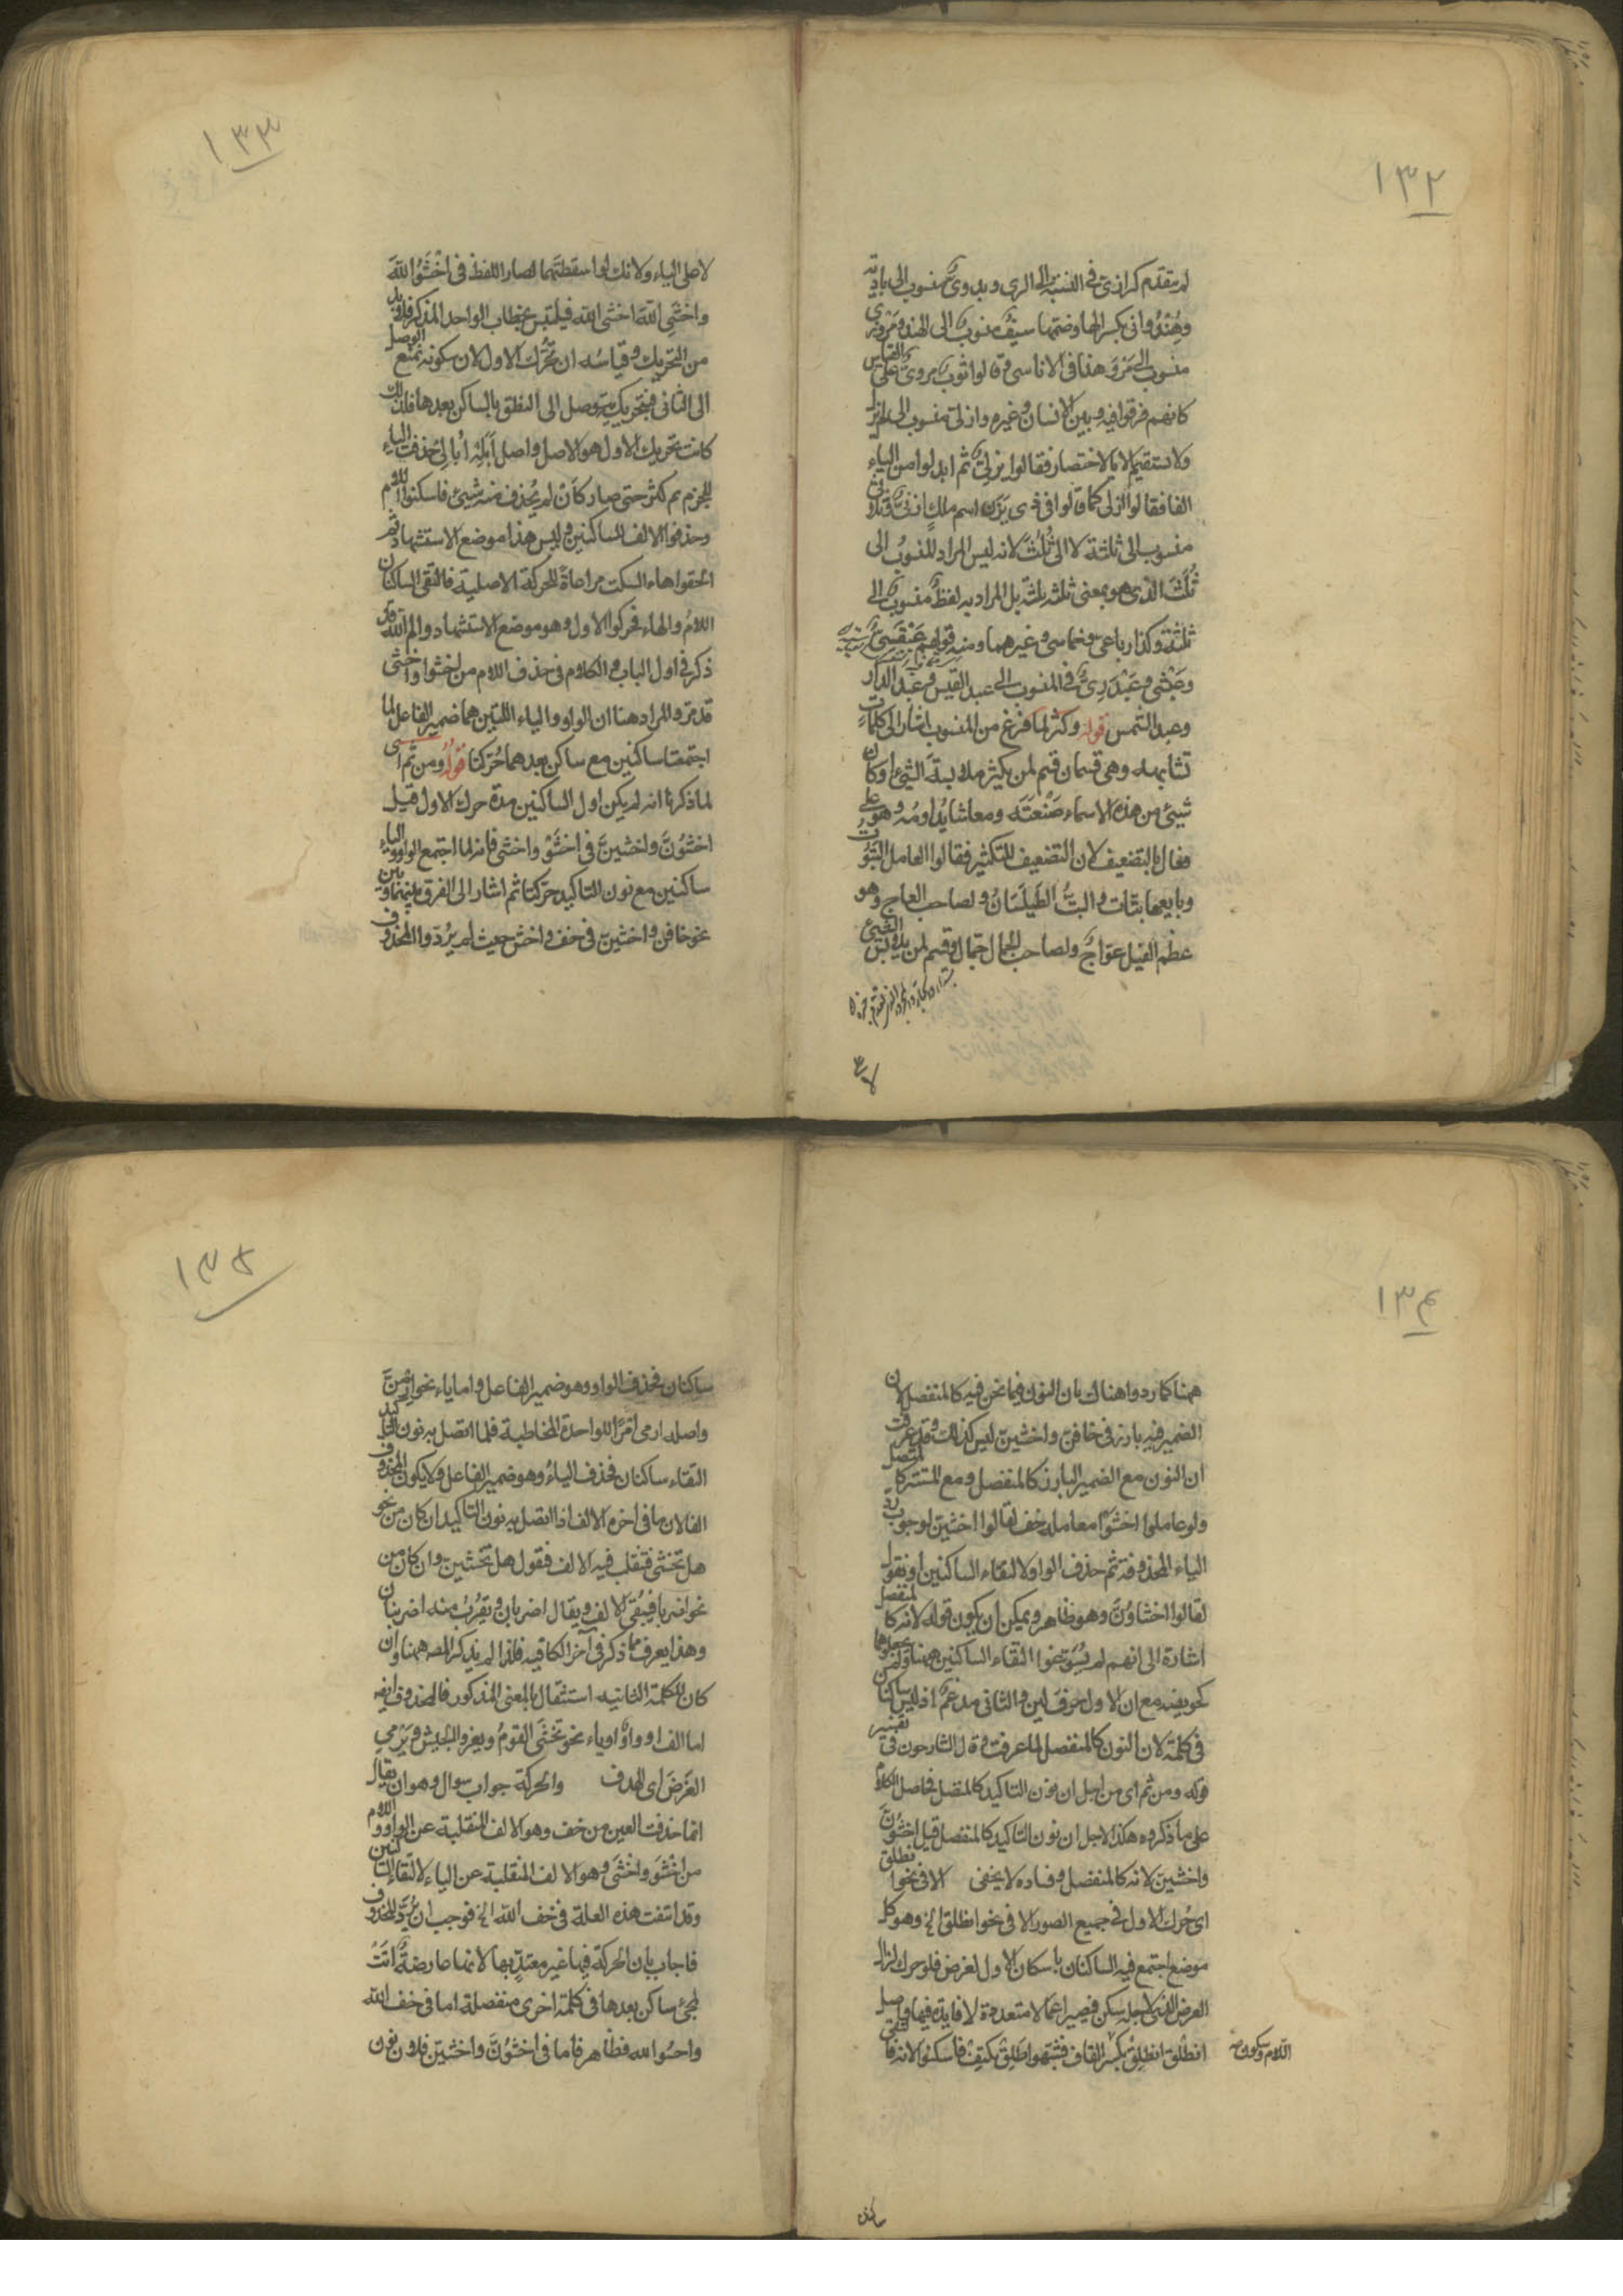 ١٣٢
لم يتقدم كرازىّ فى النسبة الى الرى وبدوىّ منسوب الى بادية
وهِنْدُوانى بكسر الهاء وضمها سيف منسوب الى الهند ومَرْوزى
منسوب الى مَرْوَ هذا فى الاناسى وقالوا ثوب مروىّ على القياس
كانهم فرقوا فيه بين الانسان وغيره وازلىّ منسوب الى لم يزل
ولا يستقيم الا بالاختصار فقالوا يزلىّ ثم ابدلوا من الياء
الفا فقالوا ازلى كما قالوا فى ذى يَزَن اسم ملك ازنىّ وثلاثى
منسوب الى ثلثة لا الى ثُلٰثَ لانه ليس المراد المنسوب الى
ثُلٰثَ الذى هو بمعنى ثلثة ثلثة بل المراد به لفظ منسوب الى
ثلثة وكذا رباعى وخماسى وغيرهما ومنه قولهم عَبْقَسِىّ
وعَبْشَمى وعَبْدَرِىّ فى المنسوب الى عبد القيس وعبد الدار
وعبد الشمس قوله وكثر لما فرغ من المنسوب اشار الى كلمات
تشابهه وهى قسمان قسم لمن يكثر ملابسة الشئ او كان
شيئ من هذه الاسماء صَنْعَتَه ومعاشا يداومُه وهو على
فعال بالتضعيف لان التضعيف للتكثير فقالوا لعامل البُتُوت
وبايعها بتّات والبتُّ الطَيلَسَانُ ولصاحب العاج وهو
عظم الفيل عوّاجٌ ولصاحب الجمال جمال وقسم لمن يلابس الشئ
١٣٣
لاصل الياء ولانك لو اسقطتهما لصار اللفظ فى اخْشَوُا اللهَ
واخشَىِ اللهَ اخشَ الله فيلتبس بخطاب الواحد المذكر فلابد
من التحريك وقياسُه ان تُحَرِّك الاول لان سكونه تمنع الوصل
الى الثانى فبتحريكه يتوصل الى النطق بالساكن بعدها فلذلك
كانت تحريك الاول هو الاصل واصل اُبَلِه اُبالِى حذفت الياء
للجزم ثم كثر حتى صار كَاَن لم يُحذف منه شيئ فاسكنوا اللام
وحذفوا الالف للساكنين وليس هذا موضع الاستشهاد ثم
الحقوا هاء السكت مراعاةً للحركة الاصلية فالتقى الساكنان
اللامُ والهاء فحركوا الاول وهو موضع الاستشهاد والم الله قد
ذكر فى اول الباب والكلام فى حذف اللام من اخشوا واخشى
قد مرّ والمراد هنا ان الواو والياء اللتين هما ضمير الفاعل لما
اجتمعتا ساكنين مع ساكن بعدهما حُرّكتا قوله ومن ثم اى
لما ذكرنا انه لم يكن اول الساكنين مدة حرك الاول قيل
اخشَوُنَّ واخشَيِنَّ فى اخشَوْ واخشَى فانه لما اجتمع الواو والياء
ساكنين مع نون التاكيد حركتا ثم اشار الى الفرق بينهما وبين
نحو خافن واخشين فى خف واخش حيث لم يرُدّوا المحذوف
١٣٤
ههنا كما ردوا هناك بان النون فيما نحن فيه كالمنفصل لان
الضمير فيه بارز فى خافن واخشين ليس كذلك وقد عرفت
ان النون مع الضمير البارز كالمنفصل ومع المستتر كالمتصل
ولو عاملوا اخشَوُا معاملة خف لقالوا اخشين لوجوب رد
الياء المحذوفة ثم حذف الواو لالتقاء الساكنين او نقول
لقالوا اخشاوُنَّ وهو ظاهر ويمكن ان يكون قوله لانه كالمنفصل
اشارة الى انهم لم يسوغوا التقاء الساكنين ههنا ولم يجعلوهما
كخويصة مع ان الاول حرف لين والثانى مدغمٌ اذ ليس ساكنان
فى كلمة لان النون كالمنفصل لما عرفت وقال الشارحون فى تفسير
قوله ومن ثم اى من اجل ان نون التاكيد كالمنفصل فحاصل الكلام
على ما ذكروه هكذا لاجل ان نون التاكيد كالمنفصل قيل اخشَوُنَّ
واخشَيِنَّ لانه كالمنفصل وفساده لا يخفى الا فى نحو انطلق
اى حُرّك الاول فى جميع الصور الا فى نحو انطلق الخ وهو كل
موضع اجتمع فيه الساكنان باسكان الاول لغرض فلو حرك لزال
الغرض الذى لاجله سكن فيصير اعمالا متعددة لا فايدة فيها واصل
انطلق انطلِقْ بكسر القاف فشبهوا طَلِق بكَتِف فاسكنوا لانه فالتقى
اللام وسكون
ساكنان
١٣٥
ساكنان فحذف الواو وهو ضمير الفاعل واما ياء نحو ارمِنَّ
واصله ارمى امرًا للواحدة المخاطبة فلما اتصل به نون التاكيد
التقاء ساكنان فحذف الياءُ وهو ضمير الفاعل ولا يكون المحذوف
الفا لان ما فى اخره الالف اذا اتصل به نون التاكيد ان كان من نحو
هل تخشى فتقلب فيه الالف فقول هل تخشَيِنّ وان كان من
نحو اضربا فيُبْقى الالف ويقال اضربان ويقرُبُ منه اضربنان
وهذا يعرف مما ذكر فى آخر الكافيه فلذا لم يذكر المصـ ههنا وان
كان للكلمة الثانيه استثقال بالمعنى المذكور فالمحذوف ايضه
اما الف او واوٌ او ياء نحو تخشَى القومُ ويغزو الجيش ويَرْمى
الغَرَضَ اى الهدف والحركة جواب سوال وهو ان يقال
انما حذفت العين من خف وهو الالف المنقلبة عن الواو واللام
من اخشَوْ واخشَى وهو الالف المنقلبة عن الياء لالتقاء الساكنين
وقد انتفت هذه العلة فى خف الله الخ فوجب ان يُرَدَّ المحذوف
فاجاب بان الحركة فيها غير معتدّ بها لانها عارضةٌ اتَتْ
لمجئ ساكن بعدها فى كلمة اخرى منفصلة اما فى خف الله
واخشوا الله فظاهر فاما فى اخشَوُنَّ واخشَيِنّ فلان نون